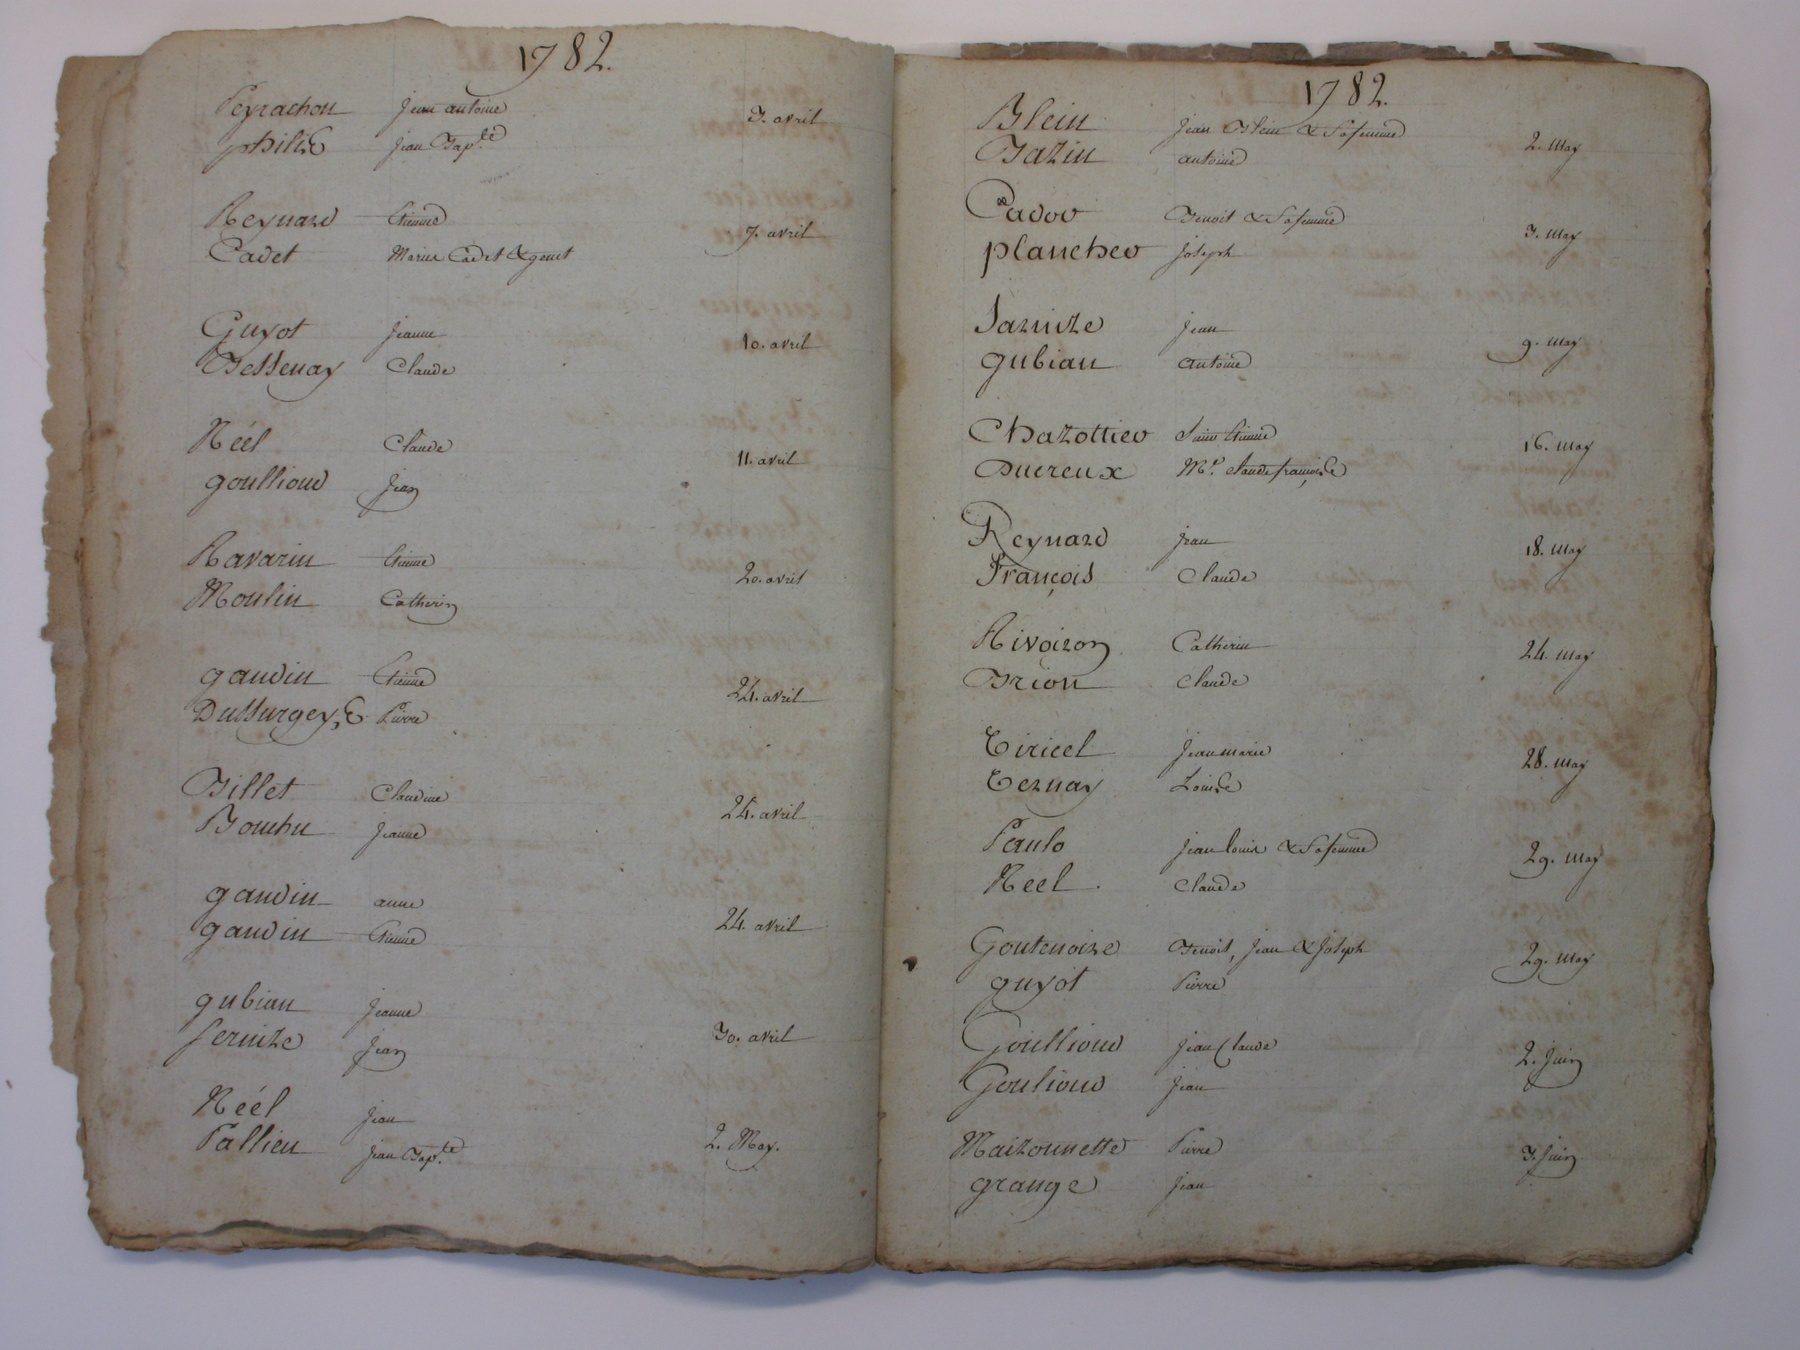 1782.
Peyrachon jean antoine
3. avril
philis jean Bap.te
Reynard Etienne
7. avril
Cadet Marie Cadet & genet
Guyot jeanne
10. avril
Bessenay Claude
Néél Claude
11. avril
goullioud jean
Ravarin Etienne
20. avril
Moulin Catherin
gaudin Etienne
24. avril
Dussurgey, Pierre
Billet Claudine
24. avril
Bouchu jeanne
gaudin anne
24. avril
gaudin Etienne
gubian jeanne
30. avril
sernize jean
Néél jean
2. May.
Pallieu jean Bap.te
1782.
Blein jean Blein & sa femme
2. may
Bazin antoine
Cador Benoit & sa femme
3. may
plancher joseph
Sarnize jean
9. may
gubian antoine
Chazottier Etienne
16. may
Ducreux Mr. claude françois
Reynard jean
18. may
François Claude
Rivoiron Catherin
24. may
Brion claude
Tiricel jean marie
28. may
Ternay Louise
Paulo jean louis & sa femme
29. may
Neel claude
Goutenoire Benoit, jean & joseph
29. may
guyot Pierre
Goullioud jean Claude
2. juin
Goulioud jean
Maizonnette Pierre
3. juin
grange jean